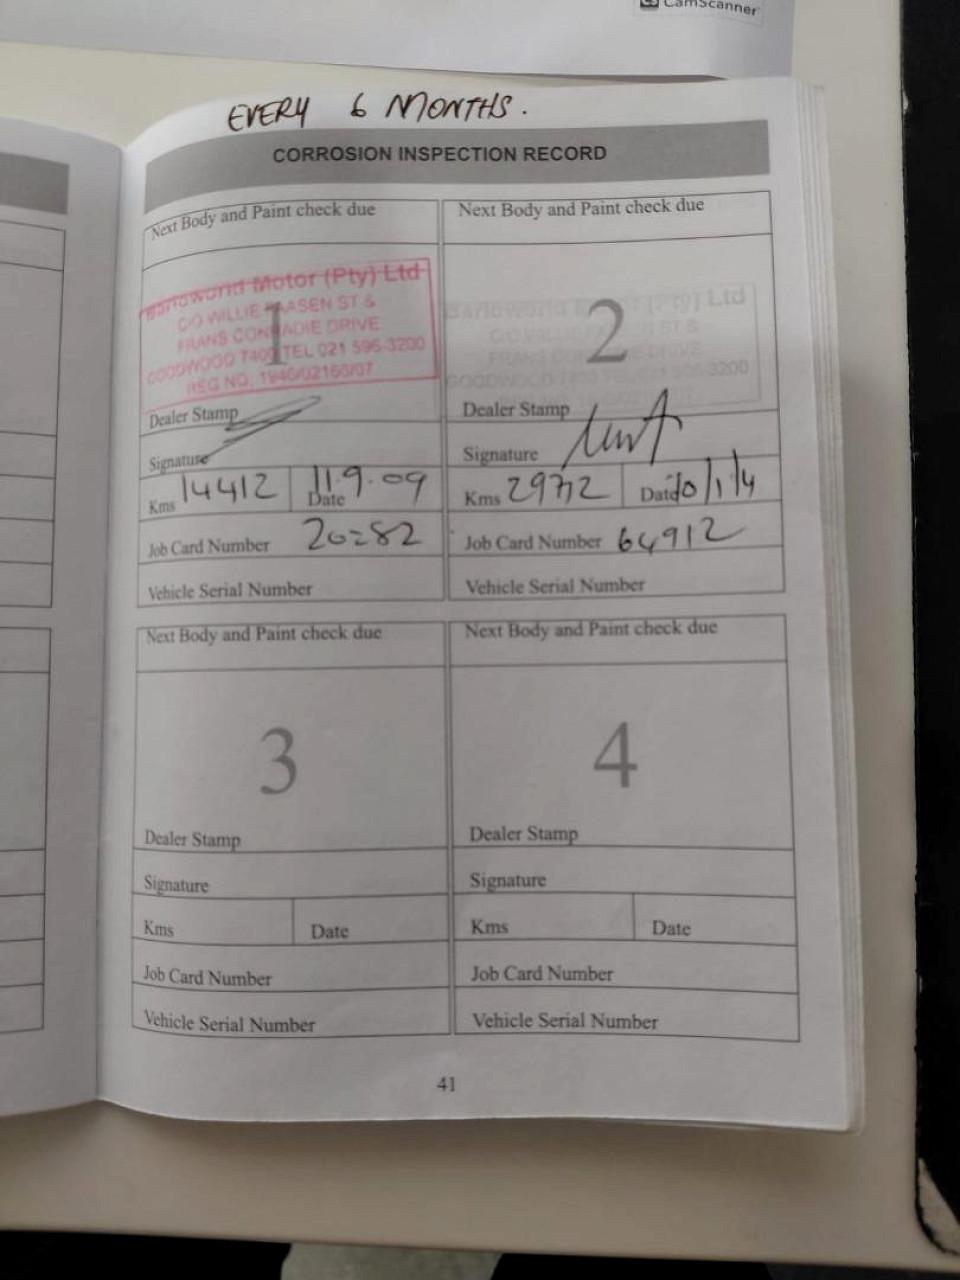 CamScanner
EVERY 6 MONTHS.
CORROSION INSPECTION RECORD
Next Body and Paint check due
Barloworld Motor (Pty) Ltd
C/O WILLIE FAASEN ST &
FRANS CONRADIE DRIVE
GOODWOOD 7400 TEL 021 595-3200
REG NO. 1946/02165/07
1
Dealer Stamp
Signature
Kms 14412 Date 11.9.09
Job Card Number 20282
Vehicle Serial Number
Next Body and Paint check due
Barloworld Motor (Pty) Ltd
C/O WILLIE FAASEN ST &
FRANS CONRADIE DRIVE
GOODWOOD 7400 TEL 021 595-3200
2
Dealer Stamp
Signature
Kms 29712 Date 10/1/14
Job Card Number 64912
Vehicle Serial Number
Next Body and Paint check due
3
Dealer Stamp
Signature
Kms Date
Job Card Number
Vehicle Serial Number
Next Body and Paint check due
4
Dealer Stamp
Signature
Kms Date
Job Card Number
Vehicle Serial Number
41